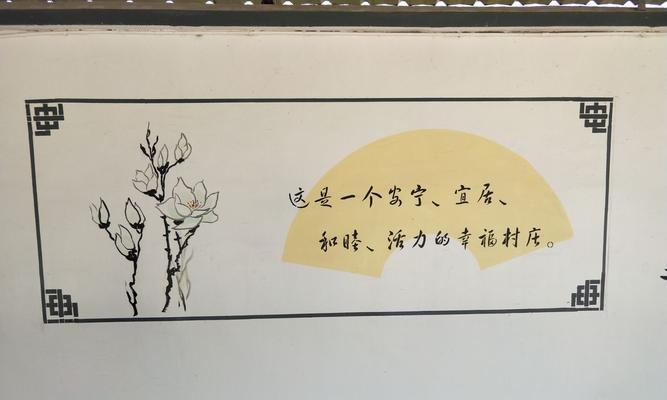 这是一个安宁、宜居、
和睦、活力的幸福村庄。